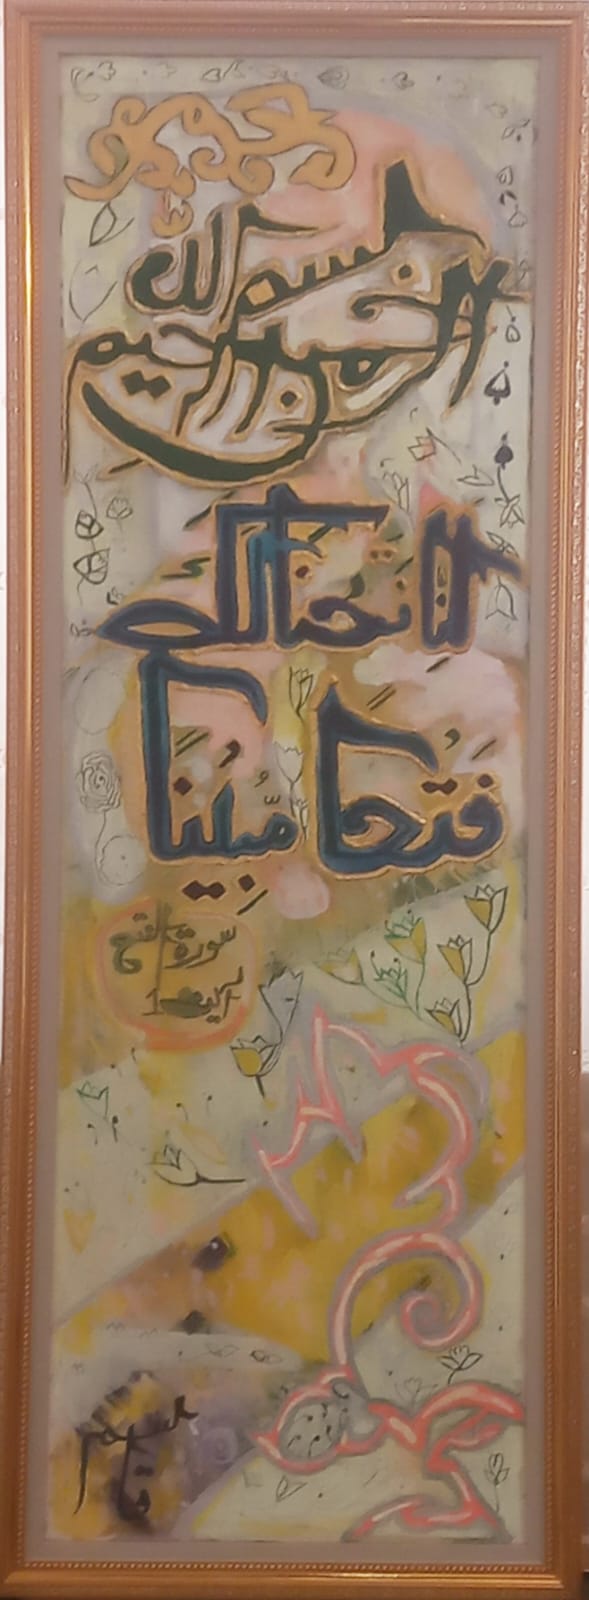 بسم الله
الرحمن الرحيم
انا فتحنا لك
فتحا مُّبِينا
سورة الفتح
آيت 1